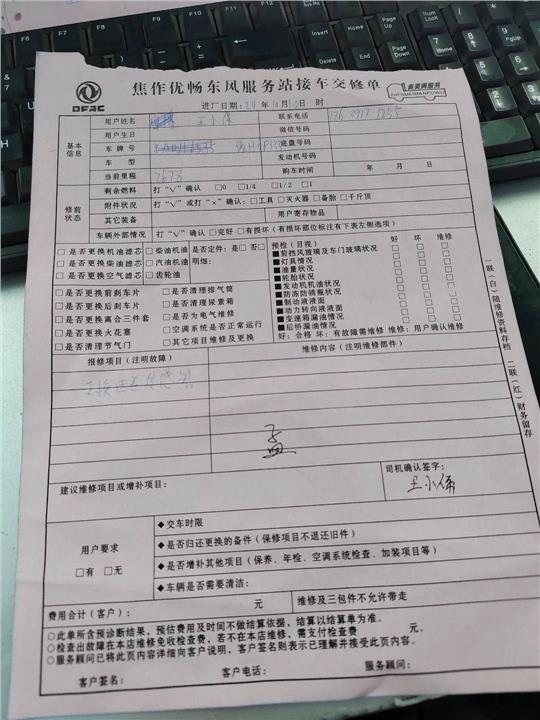 DFAC
焦作优畅东风服务站接车交修单
真美满服务
ZHENMEIMANFUWU
进厂日期：24 年 10 月 10 日 时
基本信息
用户姓名 王小伟 联系电话
用户生日 微信号码
车牌号 底盘号码
车型 发动机号码
当前里程 7673 购车时间 年 月 日
修前状态
剩余燃料 打“√”确认 □0 □1/4 □1/2 □1
附件状况 打“√”或打“×”确认：□工具 □灭火器 □备胎 □千斤顶
其它装备 用户寄存物品
车辆外部情况 打“√”确认 □完好 □有损坏（有损坏部位标注有下表左侧选项）
□是否更换机油滤芯 □柴油机油 是否定件：是 □否□
□是否更换柴油滤芯 □汽油机油 明细：
□是否更换空气滤芯 □齿轮油
□是否更换前刹车片 □是否清理排气筒
□是否更换后刹车片 □是否清理尿素箱
□是否更换离合三件套 □是否为电气维修
□是否更换火花塞 □空调系统是否正常运行
□是否清理节气门 □其它项目维修及更换
预检（目视） 好 坏 维修
■前挡风玻璃及车门玻璃状况 □ □ □
■灯具情况 □ □ □
■油量状况 □ □ □
■轮胎状况 □ □ □
■发动机机油状况 □ □ □
■防冻防锈瓶状况 □ □ □
■制动液液面 □ □ □
■动力转向液液面 □ □ □
■变速箱漏油情况 □ □ □
■后桥漏油情况 □ □ □
好：合格 坏：有故障需维修 维修：用户确认维修
报修项目（注明故障） 维修内容（注明维修部件）
孟
建议维修项目或增补项目：
司机确认签字：
王小伟
用户要求
□有 □无
◆交车时限
◆是否归还更换的备件（保修项目不退还旧件）
◆是否增补其他项目（保养、年检、空调系统检查、加装项目等）
◆车辆是否需要清洁：
费用合计（客户）： 元 维修及三包件不允许带走
○此单所含预诊断结果，预估费用及时间不做结算依据，结算以结算单为准。
○检查出故障在本店维修免收检查费，若不在本店维修，需支付检查费 元。
○服务顾问已将此页内容详细向客户说明，客户签名则表示已理解并接受此页内容。
客户签名： 客户电话： 服务顾问：
一联（白）随维修资料存档 二联（红）财务留存